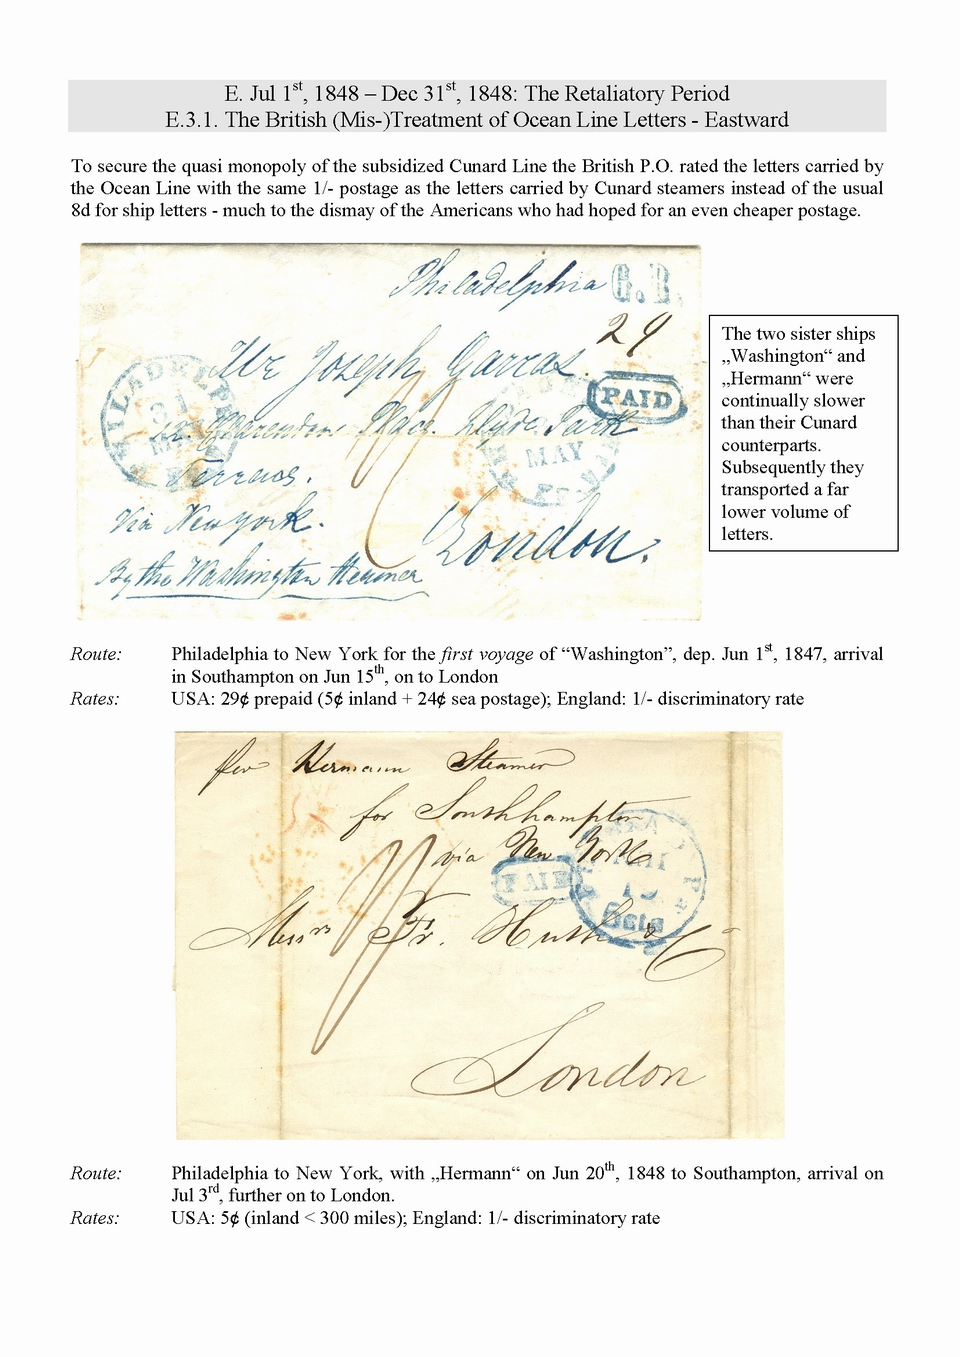 E. Jul 1st, 1848 – Dec 31st, 1848: The Retaliatory Period
E.3.1. The British (Mis-)Treatment of Ocean Line Letters - Eastward
To secure the quasi monopoly of the subsidized Cunard Line the British P.O. rated the letters carried by
the Ocean Line with the same 1/- postage as the letters carried by Cunard steamers instead of the usual
8d for ship letters - much to the dismay of the Americans who had hoped for an even cheaper postage.
Philadelphia
29
PAID
Mr Joseph Garras.
MAY
Hyde Park
Terrace.
Via New York.
London.
By the Washington Steamer
The two sister ships
„Washington“ and
„Hermann“ were
continually slower
than their Cunard
counterparts.
Subsequently they
transported a far
lower volume of
letters.
Route: Philadelphia to New York for the first voyage of “Washington”, dep. Jun 1st, 1847, arrival
in Southampton on Jun 15th, on to London
Rates: USA: 29¢ prepaid (5¢ inland + 24¢ sea postage); England: 1/- discriminatory rate
per Hermann Steamer
for Southhampton
via New York
PAID
Messrs Fr. Huth & Co
London
Route: Philadelphia to New York, with „Hermann“ on Jun 20th, 1848 to Southampton, arrival on
Jul 3rd, further on to London.
Rates: USA: 5¢ (inland < 300 miles); England: 1/- discriminatory rate